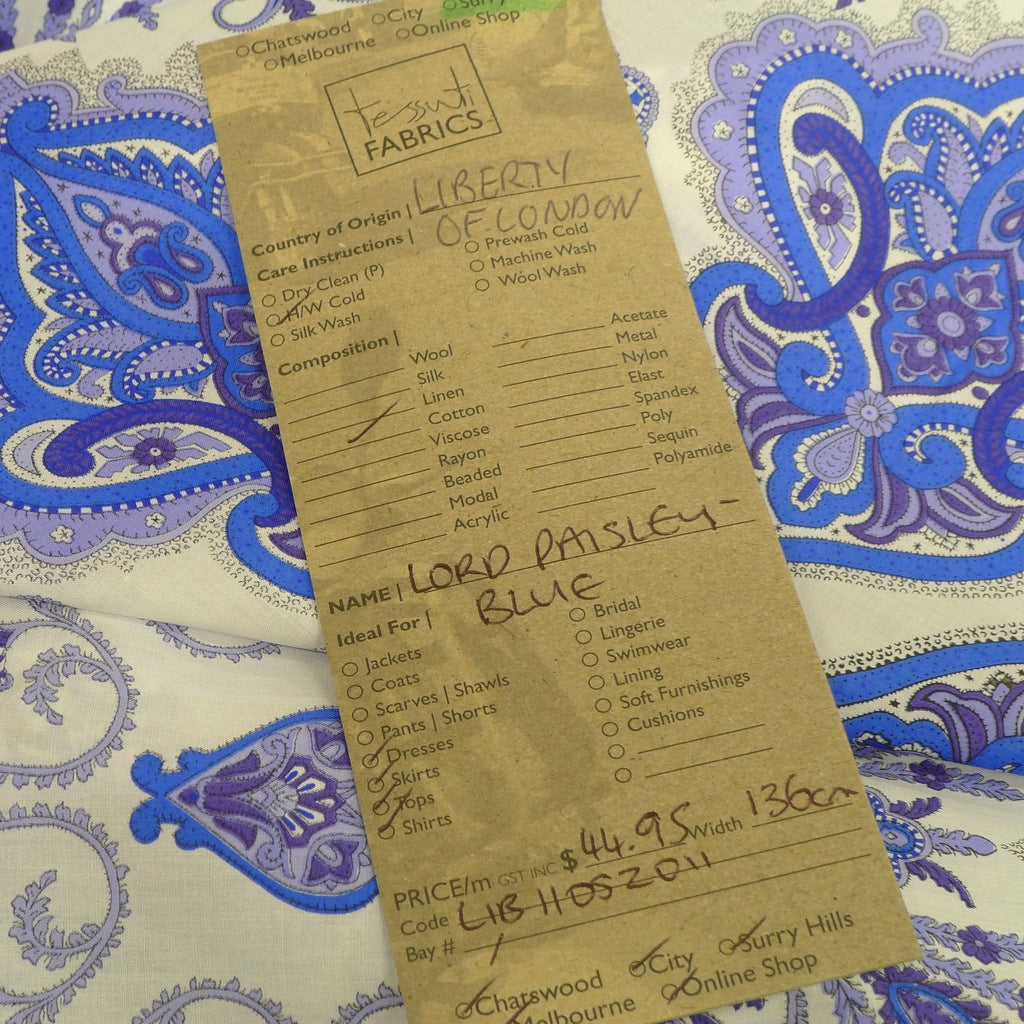 City Surry
Chatswood
Melbourne Online Shop
tessuti
FABRICS
LIBERTY
Country of Origin | OF LONDON
Care Instructions |
Dry Clean (P) Prewash Cold
H/W Cold Machine Wash
Silk Wash Wool Wash
Composition |
Wool Acetate
Silk Metal
Linen Nylon
Cotton Elast
Viscose Spandex
Rayon Poly
Beaded Sequin
Modal Polyamide
Acrylic
NAME | LORD PAISLEY -
BLUE
Ideal For |
Jackets Bridal
Coats Lingerie
Scarves | Shawls Swimwear
Pants | Shorts Lining
Dresses Soft Furnishings
Skirts Cushions
Tops
Shirts
PRICE/m GST INC $44.95 Width 136cm
Code LIB11DSZ011
Bay # 1
Chatswood City Surry Hills
Melbourne Online Shop